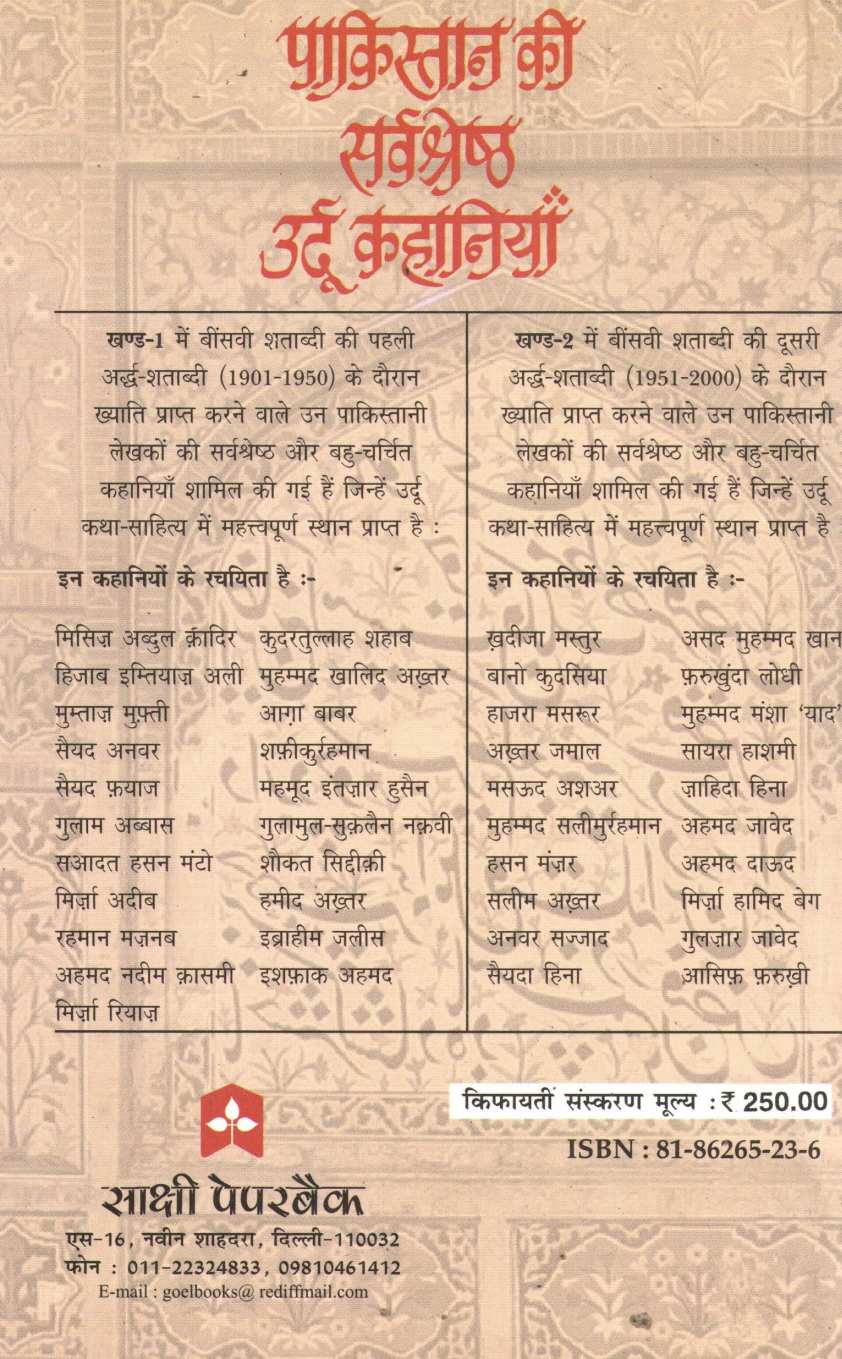 पाकिस्तान की
सर्वश्रेष्ठ
उर्दू कहानियाँ
खण्ड-1 में बींसवी शताब्दी की पहली
अर्द्ध-शताब्दी (1901-1950) के दौरान
ख्याति प्राप्त करने वाले उन पाकिस्तानी
लेखकों की सर्वश्रेष्ठ और बहु-चर्चित
कहानियाँ शामिल की गई हैं जिन्हें उर्दू
कथा-साहित्य में महत्त्वपूर्ण स्थान प्राप्त है :
इन कहानियों के रचयिता है :-
मिसिज़ अब्दुल क़ादिर कुदरतुल्लाह शहाब
हिजाब इम्तियाज़ अली मुहम्मद खालिद अख़्तर
मुम्ताज़ मुफ़्ती आग़ा बाबर
सैयद अनवर शफ़ीकुर्रहमान
सैयद फ़याज महमूद इंतज़ार हुसैन
गुलाम अब्बास गुलामुल-सुक़लैन नक़वी
सआदत हसन मंटो शौकत सिद्दीक़ी
मिर्ज़ा अदीब हमीद अख़्तर
रहमान मज़नब इब्राहीम जलीस
अहमद नदीम क़ासमी इशफ़ाक अहमद
मिर्ज़ा रियाज़
खण्ड-2 में बींसवी शताब्दी की दूसरी
अर्द्ध-शताब्दी (1951-2000) के दौरान
ख्याति प्राप्त करने वाले उन पाकिस्तानी
लेखकों की सर्वश्रेष्ठ और बहु-चर्चित
कहानियाँ शामिल की गई हैं जिन्हें उर्दू
कथा-साहित्य में महत्त्वपूर्ण स्थान प्राप्त है
इन कहानियों के रचयिता है :-
ख़दीजा मस्तुर असद मुहम्मद खान
बानो कुदसिया फ़रुखुंदा लोधी
हाजरा मसरूर मुहम्मद मंशा ‘याद’
अख़्तर जमाल सायरा हाशमी
मसऊद अशअर ज़ाहिदा हिना
मुहम्मद सलीमुर्रहमान अहमद जावेद
हसन मंज़र अहमद दाऊद
सलीम अख़्तर मिर्ज़ा हामिद बेग
अनवर सज्जाद गुलज़ार जावेद
सैयदा हिना आसिफ़ फ़रुख़ी
किफायती संस्करण मूल्य : ₹ 250.00
ISBN : 81-86265-23-6
साक्षी पेपरबैक
एस-16, नवीन शाहदरा, दिल्ली-110032
फोन : 011-22324833, 09810461412
E-mail : goelbooks@ rediffmail.com